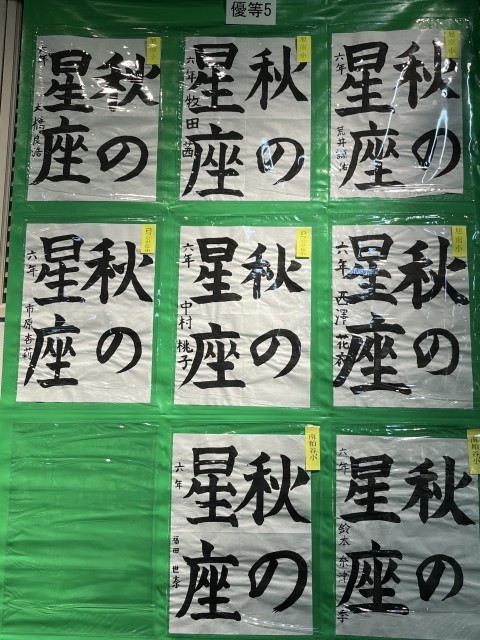 優等5
秋の
星座
六年 荒井
秋の
星座
六年 牧田 茜
秋の
星座
六年 大橋良浩
秋の
星座
六年 西澤 花
秋の
星座
六年 中村 桃子
秋の
星座
六年 市原杏莉
南粕谷小
秋の
星座
六年 鈴木 奈津季
南粕谷小
秋の
星座
六年 福田